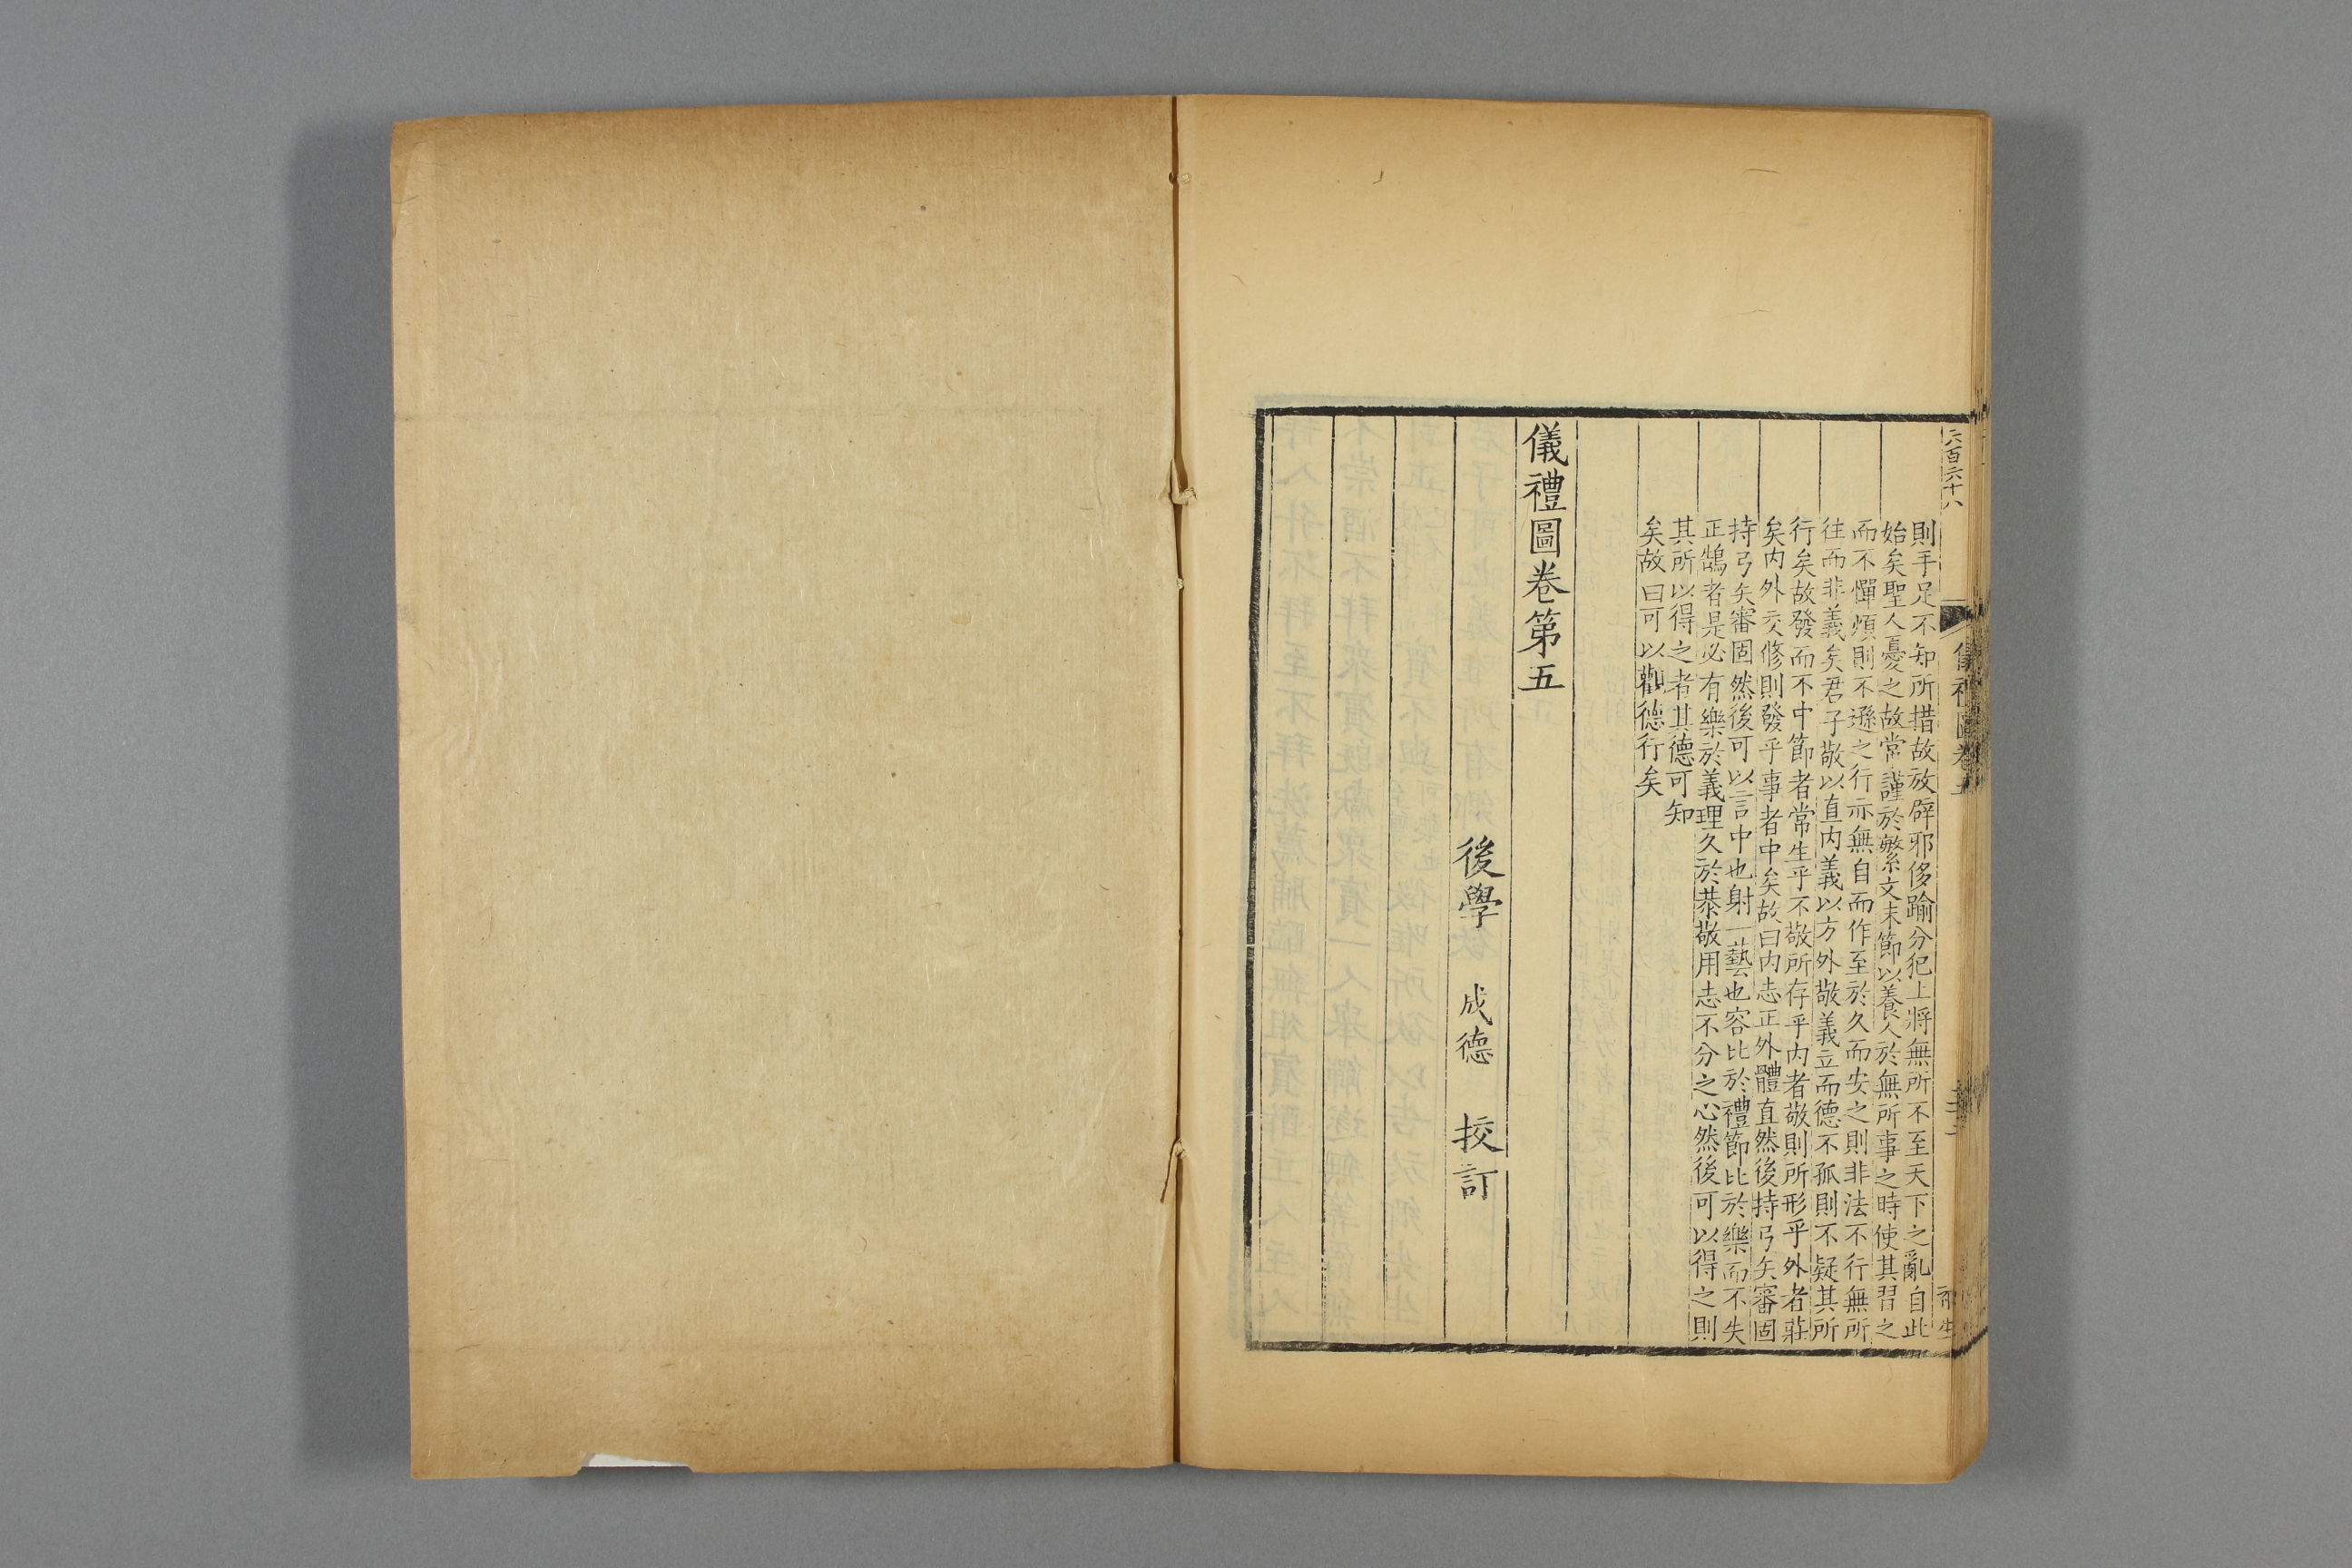 六百六十八
儀禮圖卷五
則手足不知所措故放辟邪侈踰分犯上將無所不至天下之亂自此
始矣聖人憂之故常謹於繁文末節以養人於無所事之時使其習之
而不憚煩則不遜之行亦無自而作至於久而安之則非法不行無所
往而非義矣君子敬以直内義以方外敬義立而德不孤則不疑其所
行矣故發而不中節者常生乎不敬所存乎内者敬則所形乎外者莊
矣内外交修則發乎事者中矣故曰内志正外體直然後持弓矢審固
持弓矢審固然後可以言中也射一藝也容比於禮節比於樂而不失
正鵠者是必有樂於義理久於恭敬用志不分之心然後可以得之則
其所以得之者其德可知
矣故曰可以觀德行矣
儀禮圖卷第五
後學 成德 挍訂